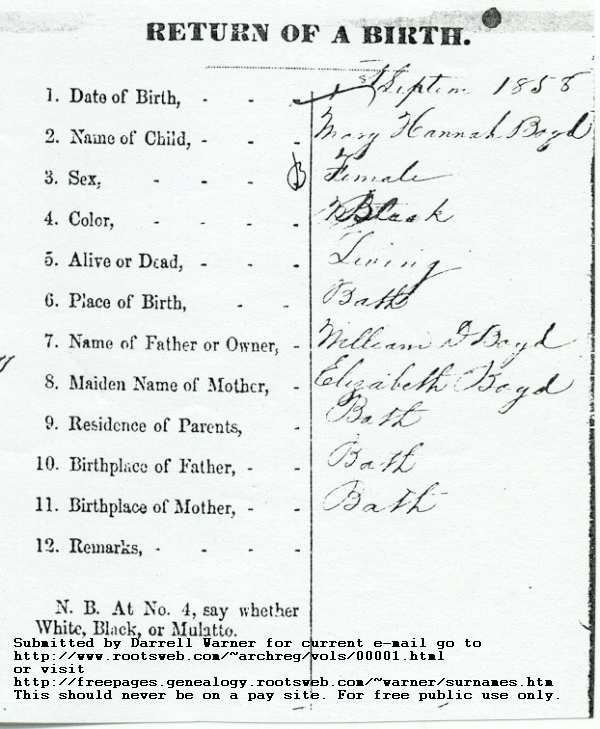 RETURN OF A BIRTH.
1. Date of Birth, - - - 1st Septem 1858
2. Name of Child, - - Mary Hannah Boyd
3. Sex, - - - - Female
4. Color, - - - - Black
5. Alive or Dead, - - - Living
6. Place of Birth, - - Bath
7. Name of Father or Owner, - William D Boyd
8. Maiden Name of Mother, - Elizabeth Boyd
9. Residence of Parents, - Bath
10. Birthplace of Father, - - Bath
11. Birthplace of Mother, - - Bath
12. Remarks, - - - -
N. B. At No. 4, say whether
White, Black, or Mulatto.
Submitted by Darrell Warner for current e-mail go to
http://www.rootsweb.com/~archreg/vols/00001.html
or visit
http://freepages.genealogy.rootsweb.com/~warner/surnames.htm
This should never be on a pay site. For free public use only.